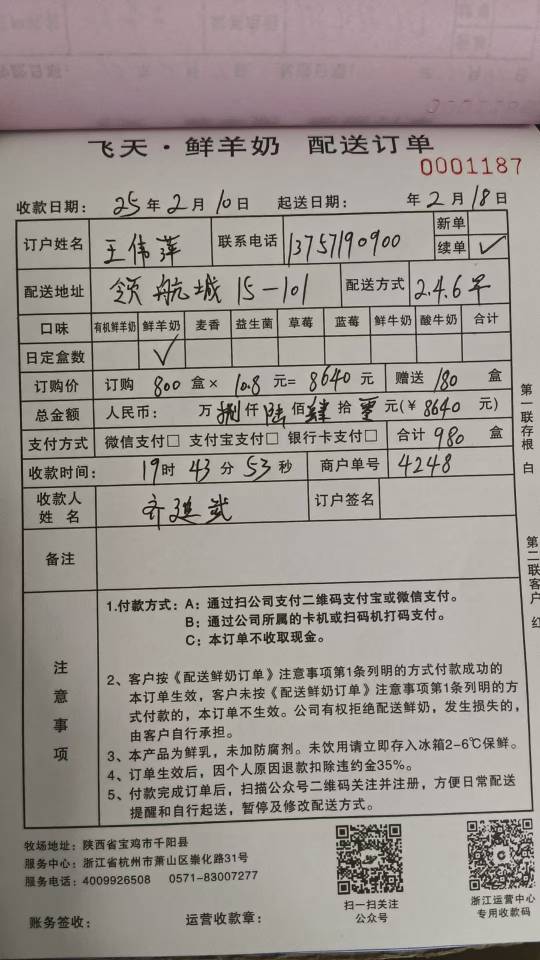 飞天·鲜羊奶 配送订单
0001187
收款日期: 25年2月10日 起送日期: 年2月18日
订户姓名 王伟萍 联系电话 13757190900 新单
续单 ✓
配送地址 领航城15-101 配送方式 2.4.6早
口味 有机鲜羊奶 鲜羊奶 麦香 益生菌 草莓 蓝莓 鲜牛奶 酸牛奶 合计
日定盒数 ✓
订购价 订购 800 盒× 10.8 元= 8640 元 赠送 180 盒
总金额 人民币: 万 捌 仟 陆 佰 肆 拾 零 元(¥ 8640 元)
支付方式 微信支付□ 支付宝支付□ 银行卡支付□ 合计 980 盒
收款时间: 19时 43分 53秒 商户单号 4248
收款人姓名 齐 武 订户签名
备注
注意事项
1.付款方式: A: 通过扫公司支付二维码支付宝或微信支付。
B: 通过公司所属的卡机或扫码机打码支付。
C: 本订单不收取现金。
2、客户按《配送鲜奶订单》注意事项第1条列明的方式付款成功的
本订单生效,客户未按《配送鲜奶订单》注意事项第1条列明的方
式付款的,本订单不生效。公司有权拒绝配送鲜奶,发生损失的,
由客户自行承担。
3、本产品为鲜乳,未加防腐剂。未饮用请立即存入冰箱2-6℃保鲜。
4、订单生效后,因个人原因退款扣除违约金35%。
5、付款完成订单后,扫描公众号二维码关注并注册,方便日常配送
提醒和自行起送,暂停及修改配送方式。
第一联存根 白
第二联客户 红
牧场地址: 陕西省宝鸡市千阳县
服务中心: 浙江省杭州市萧山区崇化路31号
服务电话: 4009926508 0571-83007277
扫一扫关注
公众号
浙江运营中心
专用收款码
账务签收: 运营收款章: